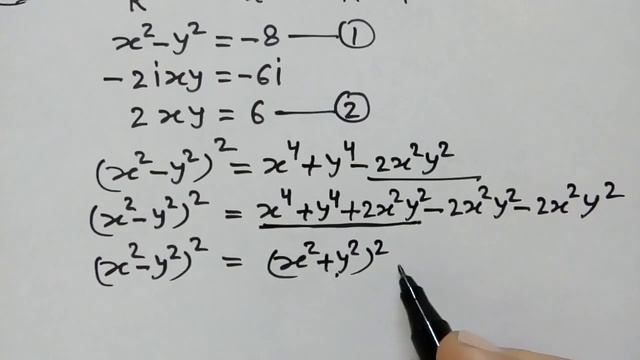 x² - y² = -8 —— ①
- 2ixy = -6i
2xy = 6 —— ②
(x² - y²)² = x⁴ + y⁴ - 2x²y²
(x² - y²)² = x⁴ + y⁴ + 2x²y² - 2x²y² - 2x²y²
(x² - y²)² = (x² + y²)²